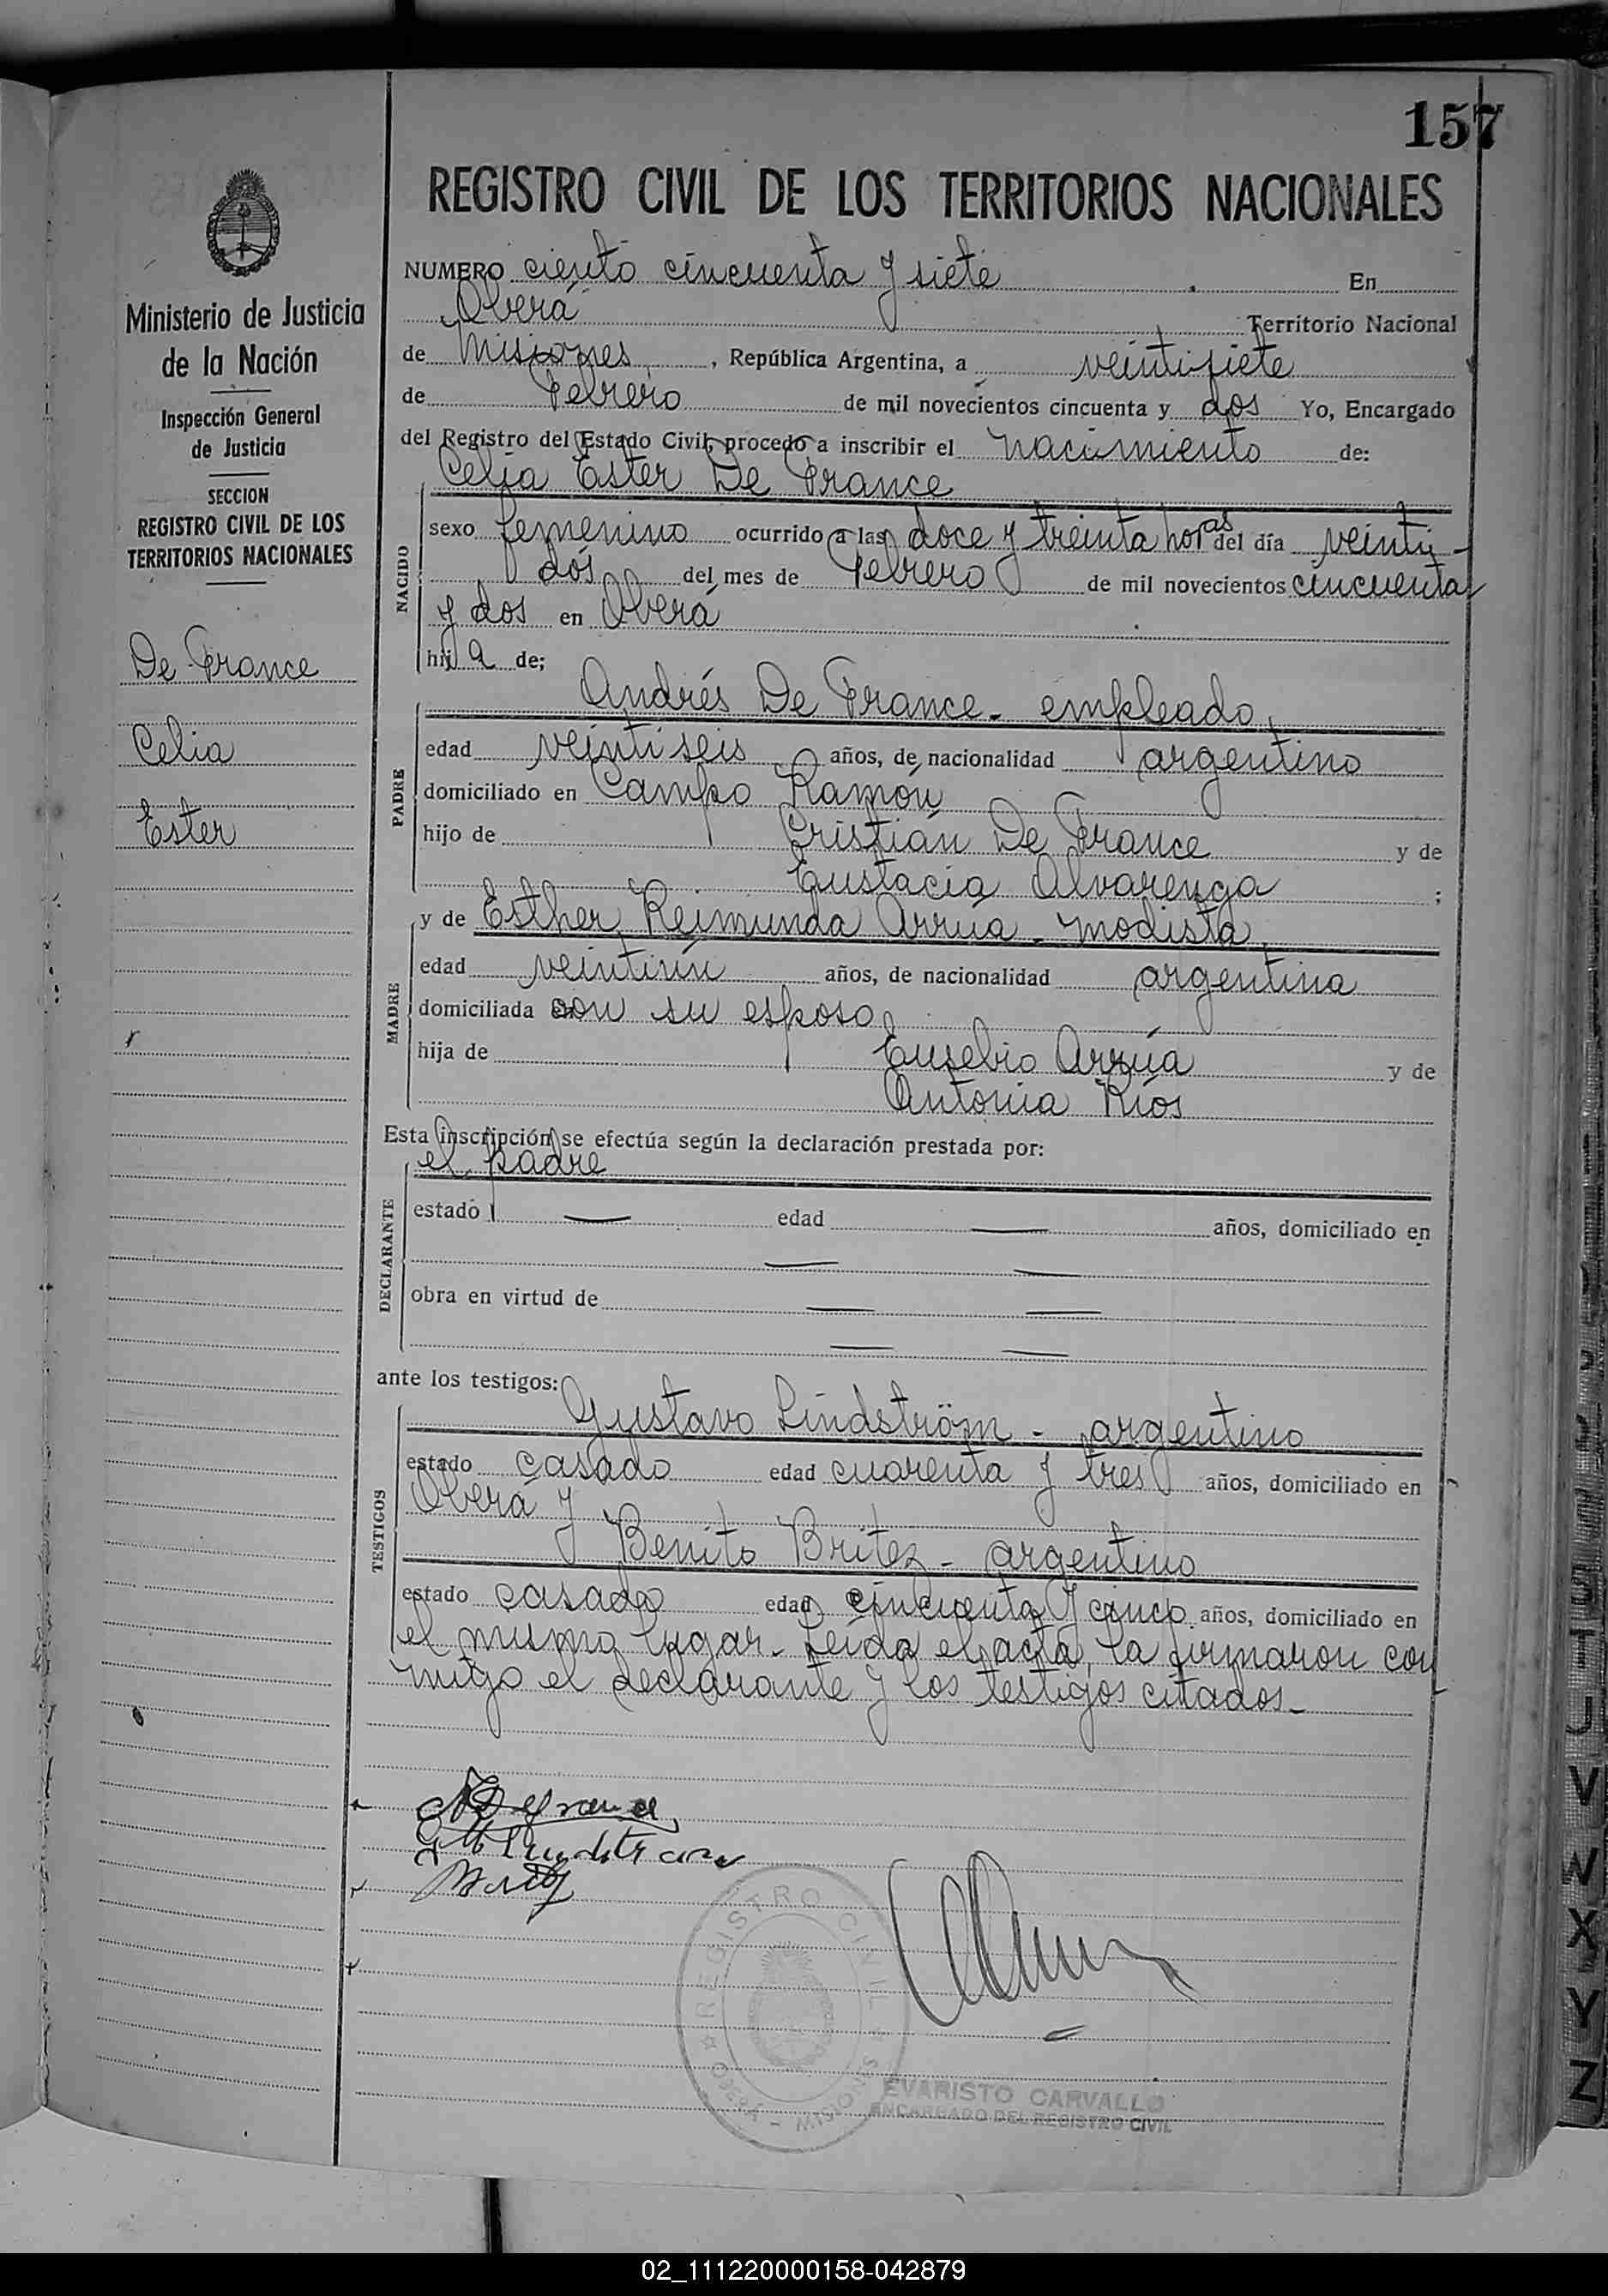 157
REGISTRO CIVIL DE LOS TERRITORIOS NACIONALES
Ministerio de Justicia
de la Nación
Inspección General
de Justicia
SECCION
REGISTRO CIVIL DE LOS
TERRITORIOS NACIONALES
De France
Celia
Ester
NUMERO ciento cincuenta y siete . En
Oberá Territorio Nacional
de Misiones , República Argentina, a veintisiete
de Febrero de mil novecientos cincuenta y dos Yo, Encargado
del Registro del Estado Civil, procedo a inscribir el nacimiento de:
Celia Ester De France
NACIDO
sexo femenino ocurrido a las doce y treinta horas del día veinti-
dós del mes de Febrero de mil novecientos cincuenta
y dos en Oberá
hija de;
Andrés De France - empleado,
PADRE
edad veintiseis años, de nacionalidad argentino
domiciliado en Campo Ramón
hijo de Cristián De France y de
Eustacia Alvarenga ;
y de Esther Reimunda Arrúa - modista,
MADRE
edad veintiún años, de nacionalidad argentina
domiciliada con su esposo
hija de Eusebio Arrúa y de
Antonia Ríos
Esta inscripción se efectúa según la declaración prestada por:
el padre
DECLARANTE
estado — edad — años, domiciliado en
— —
obra en virtud de — —
— —
ante los testigos:
Gustavo Lindström - argentino
TESTIGOS
estado casado edad cuarenta y tres años, domiciliado en
Oberá y
Benito Britez - argentino
estado casado edad cincuenta y cinco años, domiciliado en
el mismo lugar. Leída el acta, la firmaron con
migo el declarante y los testigos citados.-
REGISTRO CIVIL
OBERÁ - MISIONES
EVARISTO CARVALLO
ENCARGADO DEL REGISTRO CIVIL
S
T
U
V
W
X
Y
Z
02_111220000158-042879